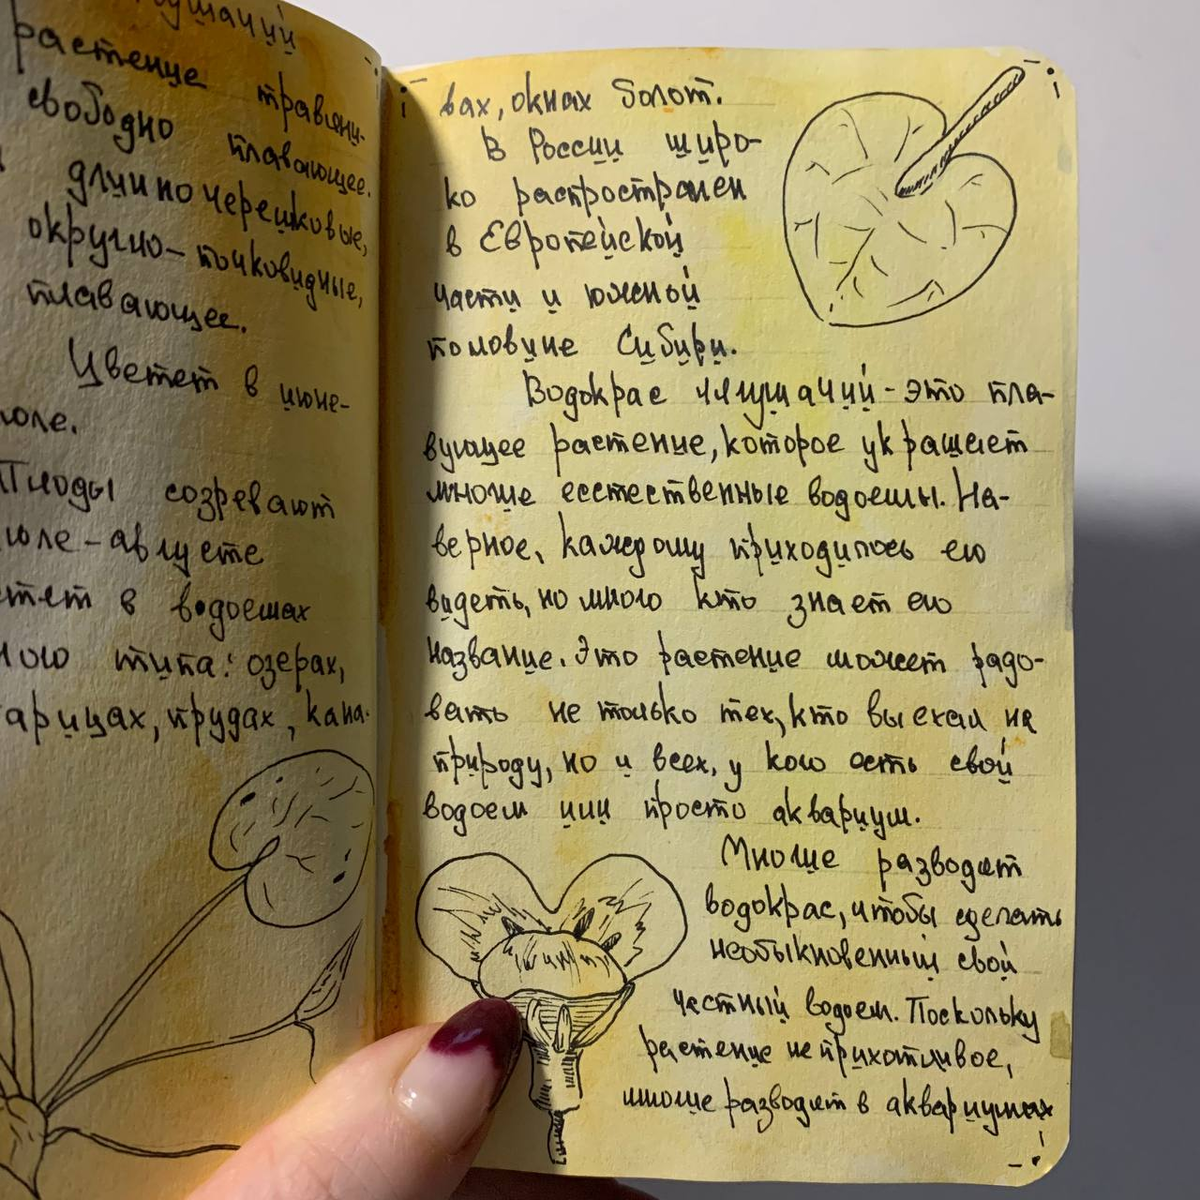 растение травяни-
свободно плавающее.
длинočерешковые,
округло-почковидные,
плавающее.
Цветет в июне-
юле.
Плоды созревают
юле-августе
тет в водоемах
ного типа: озерах,
арицах, прудах, кана-
вах, окнах болот.
В России широ-
ко распространен
в Европейской
части и южной
половине Сибири.
Водокрас лягушачий - это пла-
вующее растение, которое украшает
многие есстественные водоемы. На-
верное, каждому приходилось его
видеть, но много кто знает его
название. Это растение может радо-
вать не только тех, кто выехал на
природу, но и всех, у кого есть свой
водоем или просто аквариум.
Многие разводят
водокрас, чтобы сделать
необыкновенным свой
честный водоем. Поскольку
растение неприхотливое,
многие разводят в аквариумах